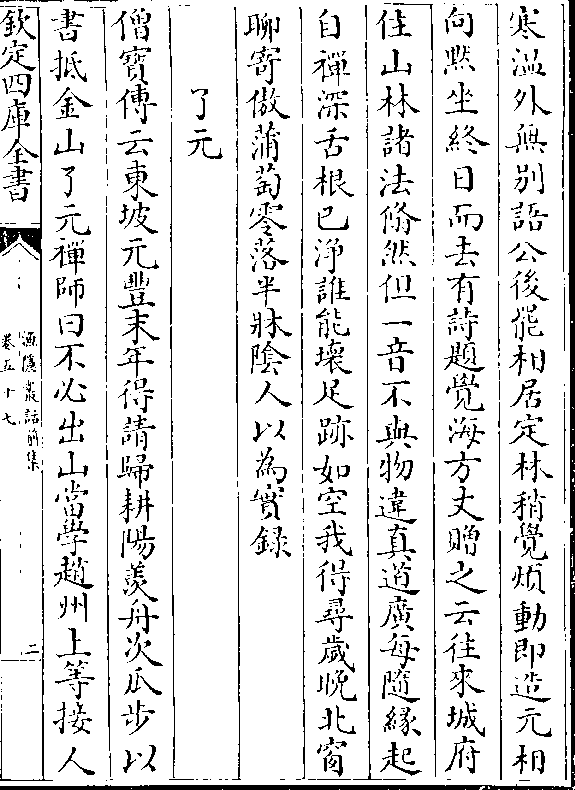 寒温外無别語公後罷相居定林稍覺煩動即造元相
向黙坐終日而去有詩題覺海方丈贈之云往來城府
住山林諸法翛然但一音不與物違真道廣每隨緣起
自禪深舌根已淨誰能壊足跡如空我得尋歳晩北窗
聊寄傲蒲萄零落半牀陰人以為實録
了元
僧寳傳云東坡元豐末年得請歸耕陽羡舟次瓜步以
書抵金山了元禪師曰不必出山當學趙州上等接人
欽定四庫全書
漁隱叢話前集
卷五十七
二